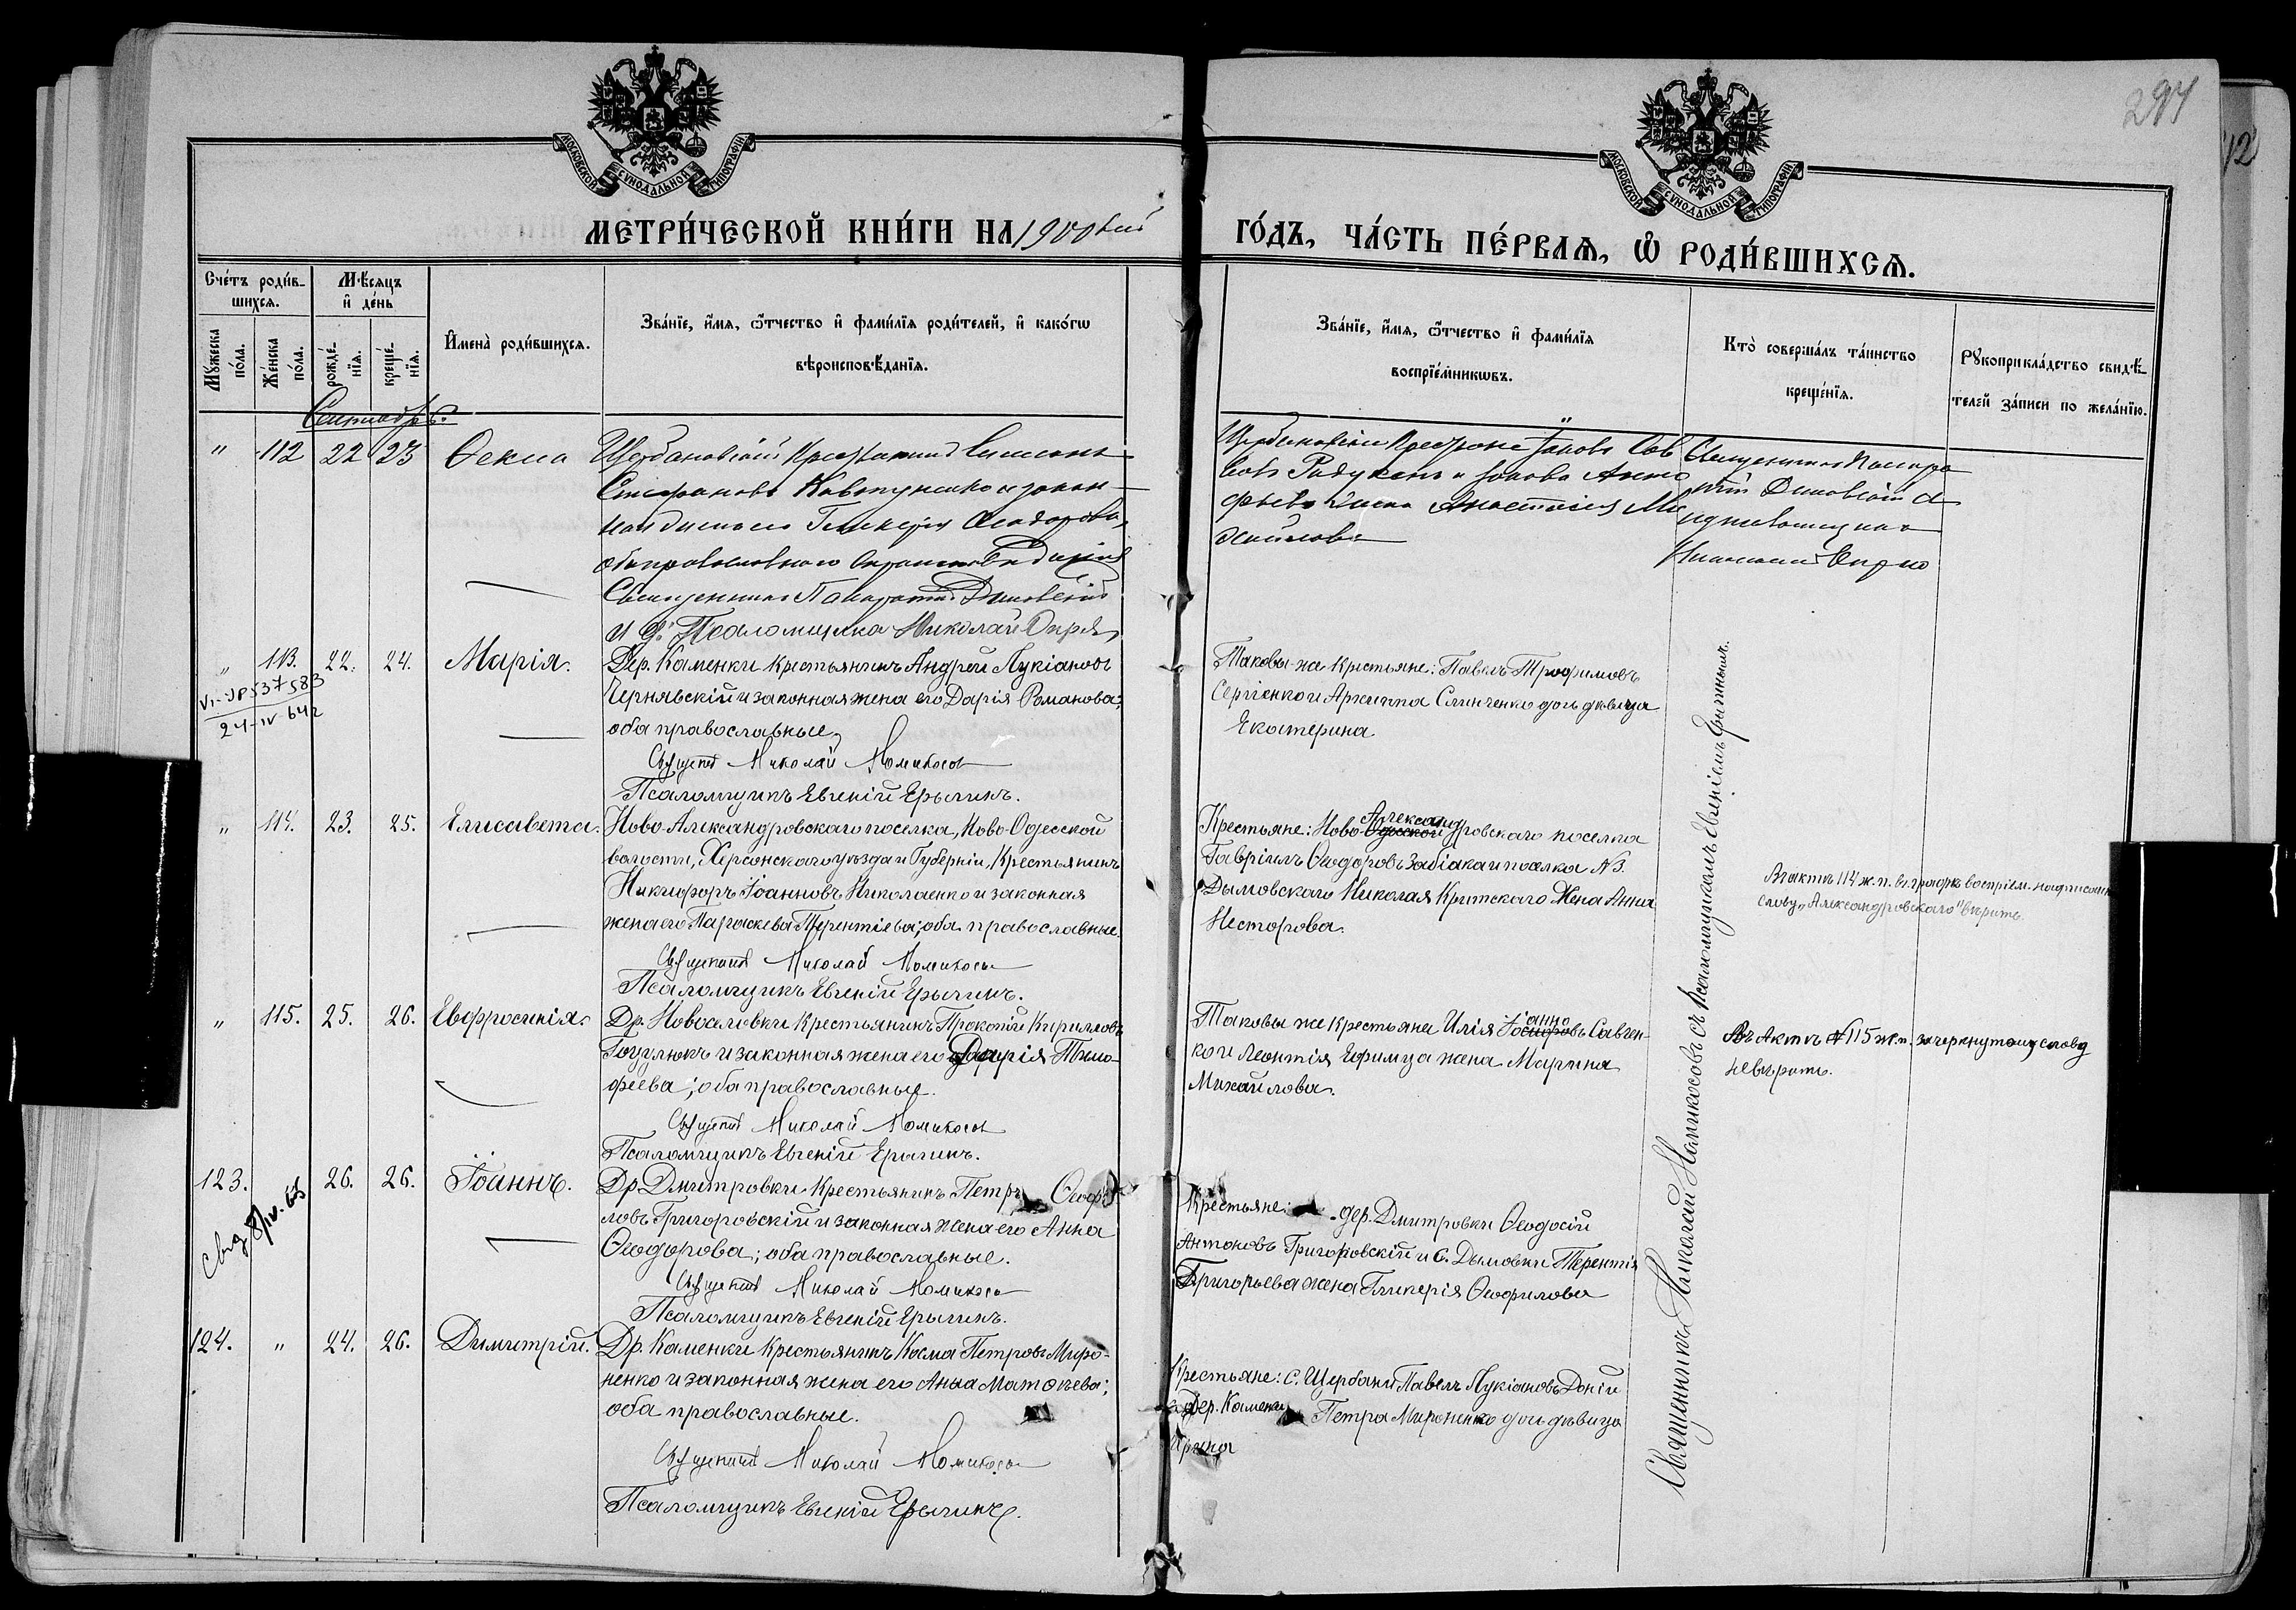 294
12
МОСКОВСКОЙ СѴНОДАЛЬНОЙ ТИПОГРАФІИ
МОСКОВСКОЙ СѴНОДАЛЬНОЙ ТИПОГРАФІИ
МЕТРИ́ЧЕСКОЙ КНИ́ГИ НА 1900 ГО́ДЪ, ЧА́СТЬ ПЕ́РВАѦ, Ѡ РОДИ́ВШИХСѦ.
Сче́тъ роди́в-
шихсѧ.
Мѣ́сѧцъ
и де́нь
Мꙋ́жеска
по́ла.
Же́нска
по́ла.
рожде́-
нїѧ.
креще́-
нїѧ.
Имена̀ роди́вшихсѧ.
Зва́нїе, и́мѧ, ѻ҆́тчество и фами́лїѧ роди́телей, и како́гѡ
вѣроисповѣ́данїѧ.
Зва́нїе, и́мѧ, ѻ҆́тчество и фами́лїѧ
воспрїе́мникѡвъ.
Кто̀ соверша́лъ та́инство
креще́нїѧ.
Рꙋкоприкла́дство свидѣ́-
телей за́писи по жела́нїю.
Сентябрь.
" 112 22 23 Ѳекла
Щербановскій
Стефановъ Ковтуненко и закон-
ная жена его Гликерія Ѳеодорова
оба православнаго
Священникъ Панкратій Дымовскій
И. д. Псаломщика Николай
Яковъ
жена Анастасія
Священникъ Панкра
тій Дымовскій
Николай
" 113. 22. 24. Марія.
VI-ЯР 537583
24-IV 64г
Дер. Каменки Крестьянинъ Андрей Лукіановъ
Чернявскій и законная жена его Дарія Романова;
оба православные,
Священникъ Николай Номикосовъ
Псаломщикъ Евгеній Ерыгинъ.
Таковы-же Крестьяне: Павелъ Трофимовъ
Сергіенко и Архиппа Слинченко дочь дѣвица
Екатерина
" 114. 23. 25. Елисавета.
Ново-Александровскаго поселка, Ново-Одесской
волости, Херсонскаго уѣзда и Губерніи, Крестьянинъ
Никифоръ Іоанновъ Николаенко и законная
жена его Параскева Терентіева; оба православные.
Священникъ Николай Номикосовъ
Псаломщикъ Евгеній Ерыгинъ.
Александ
Крестьяне: Ново-Одесской дровскаго поселка
Гавріилъ Ѳеодоровъ Забіака и поселка №3.
Дымовскаго Николая Критскаго Жена Анна
Несторова.
Въ актѣ 114 ж. п. въ графѣ воспріем. надписан
слову „Александровскаго" вѣрить.
" 115. 25. 26. Евфросинія.
Др. Новоселовки Крестьянинъ Прокопій Кирилловъ
Гоцулюкъ и законная жена его Дарія Тимо-
феева; оба православные.
Священникъ Николай Номикосовъ
Псаломщикъ Евгеній Ерыгинъ.
Таковы же Крестьяне Илія Іоанно въ Савчен-
ко и Леонтія Ефимца жена Марина
Михайлова.
Въ Актѣ №115 ж.п. зачеркнутому слову
невѣрить.
123. 26. 26. Іоаннъ.
Свид 8/IV. 63
Др Дмитровки Крестьянинъ Петръ Ѳеофи
ловъ Григоровскій и законная жена его Анна
Ѳеодорова; оба православные.
Священникъ Николай Номикосовъ
Псаломщикъ Евгеній Ерыгинъ.
Крестьяне: дер. Дмитровки Ѳеодосій
Антоновъ Григоровскій и С. Дымовки Терентія
Григорьева жена Гликерія Ѳеофилова
124. " 24. 26. Димитрій.
Др. Каменки Крестьянинъ Косма Петровъ Миро-
ненко и законная жена его Анна Матѳеева;
оба православные.
Священникъ Николай Номикосовъ
Псаломщикъ Евгеній Ерыгинъ.
Крестьяне: С. Щербани Павелъ Лукіановъ Доній
и дер. Каменки Петра Мироненко дочь дѣвица
Ирина
Священникъ Николай Номикосовъ съ Псаломщикомъ Евгеніемъ Ерыгинымъ.